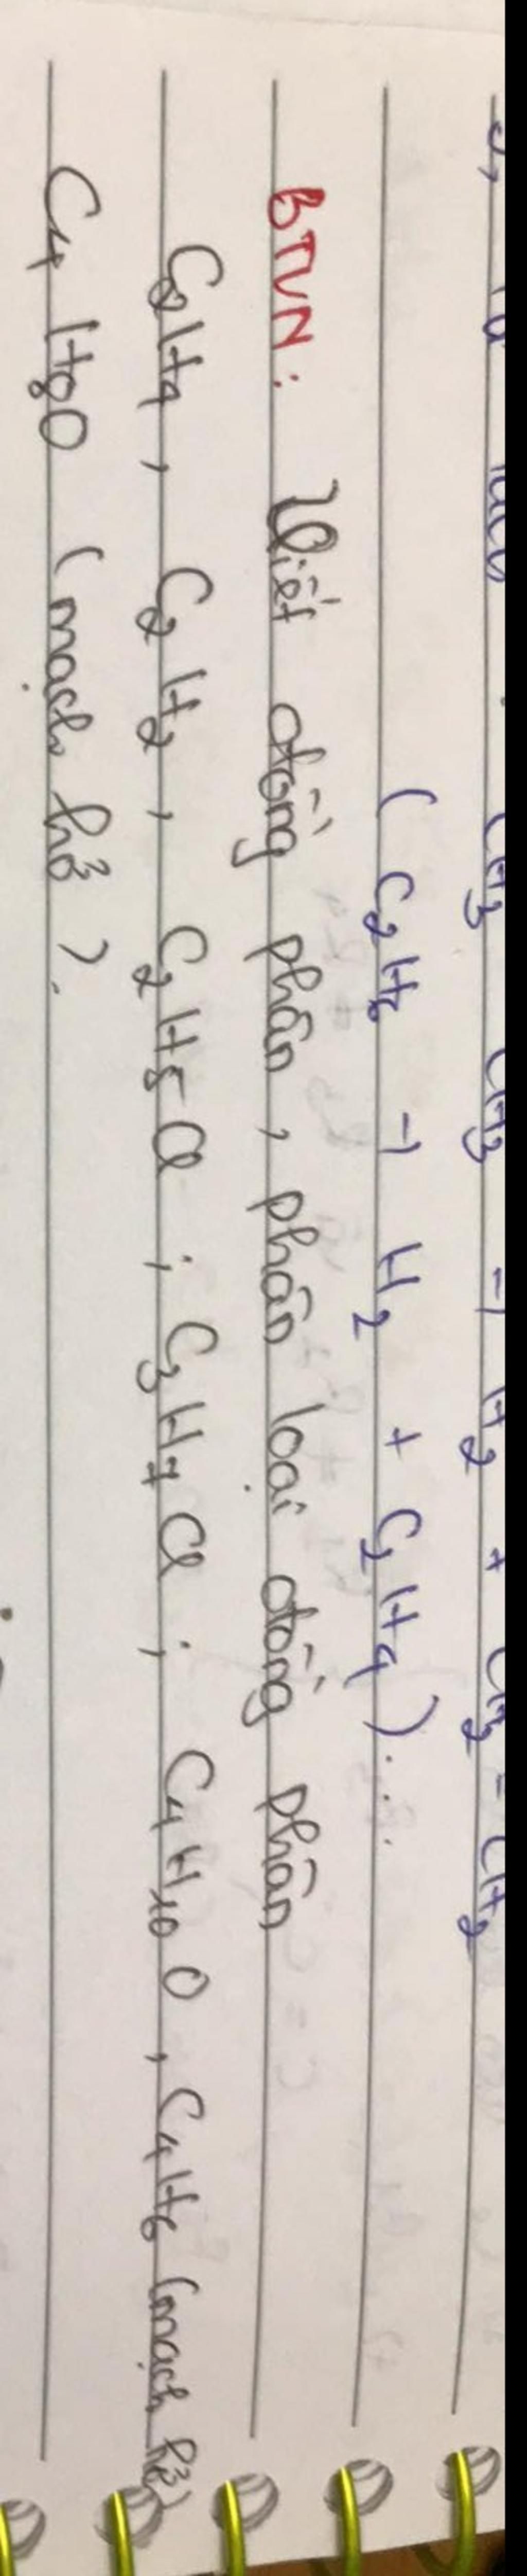 CH3 CH3 → H2 + CH2 = CH2
( C2H6 → H2 + C2H4 )...
BTVN: Viết đồng phân, phân loại đồng phân
C2H4, C2H2, C2H5Cl ; C3H7Cl ; C4H10O, C4H6 (mạch hở)
C4H8O (mạch hở).